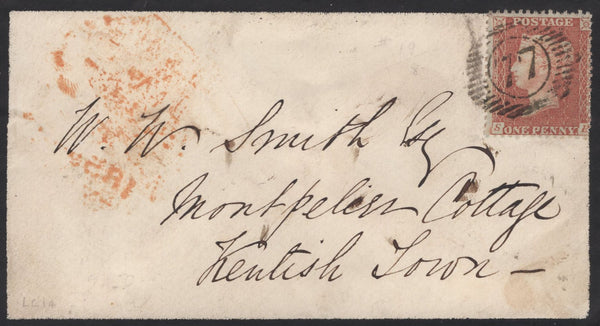 POSTAGE
17
ONE PENNY
W. W. Smith Esq
Montpelier Cottage
Kentish Town –
LC14